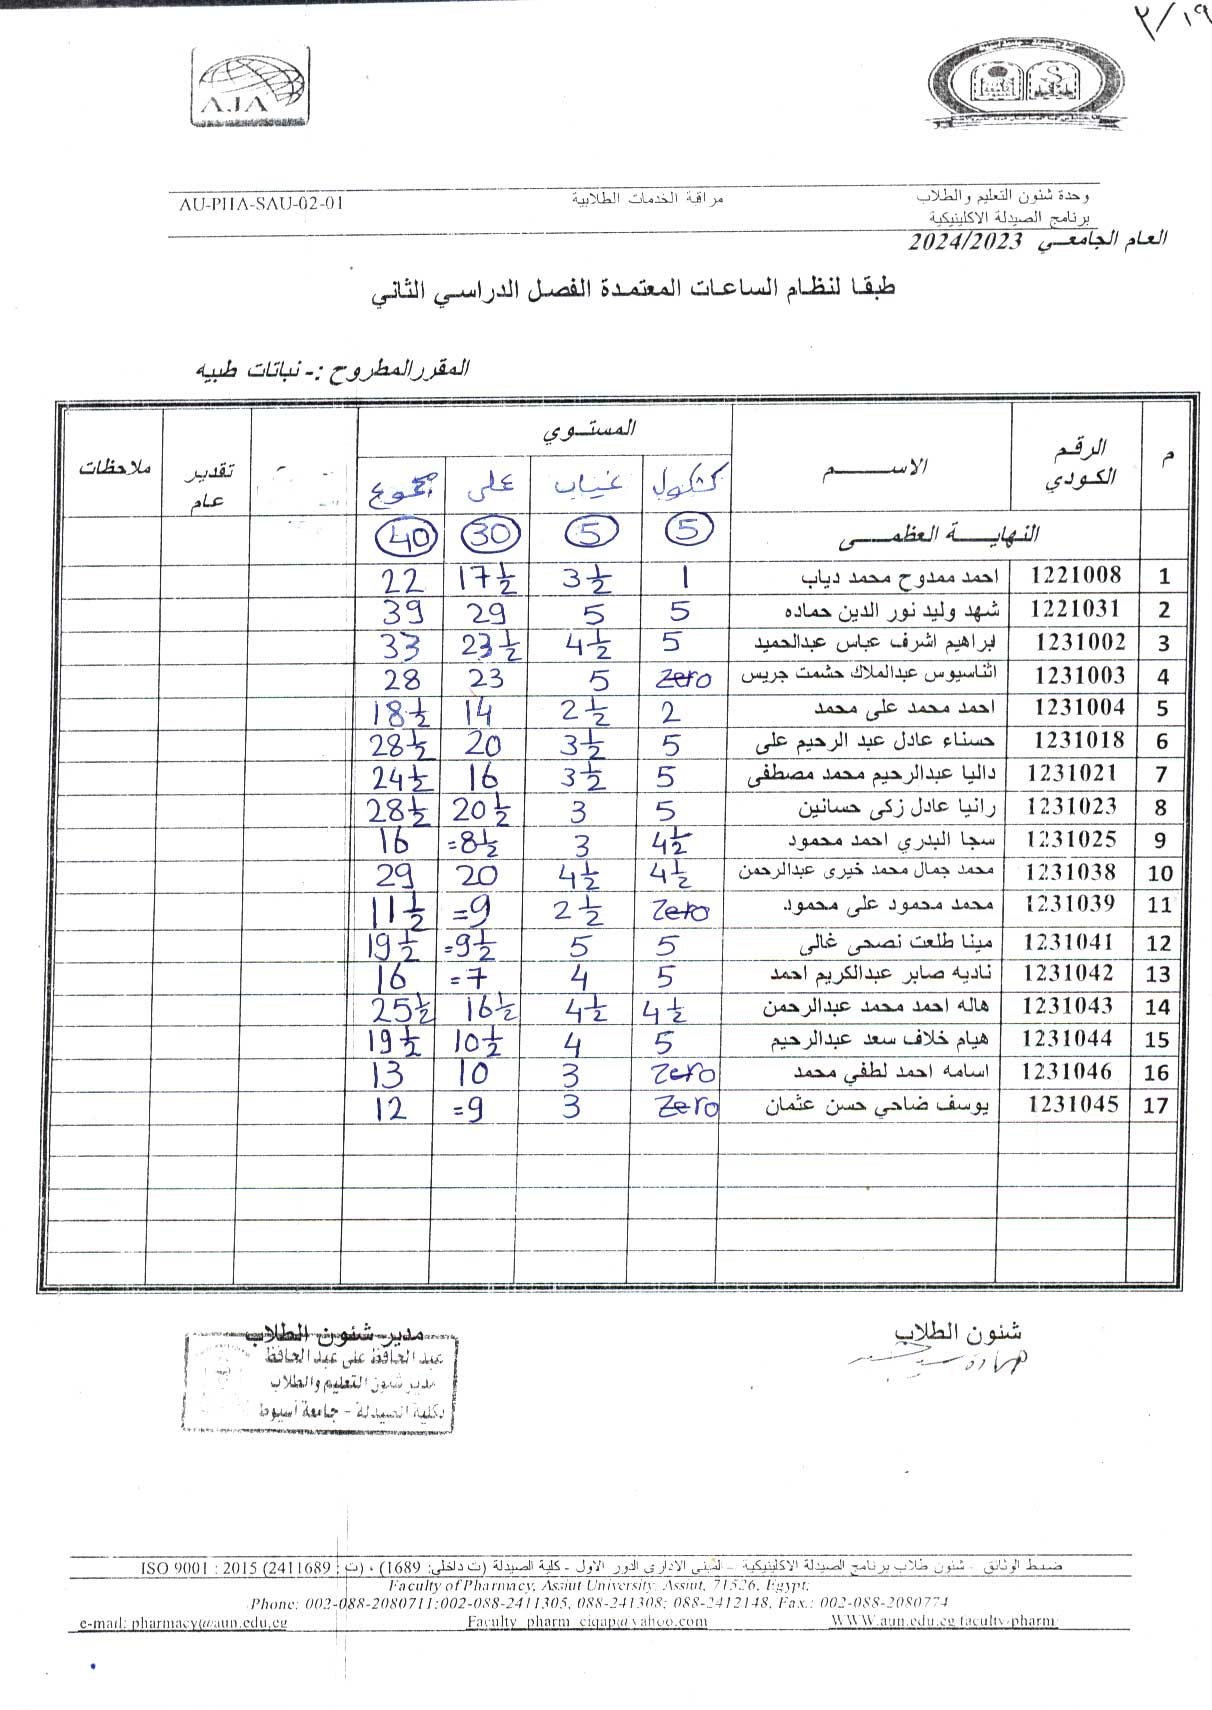 ٢/١٩
AJA
وحدة شئون التعليم والطلاب
برنامج الصيدلة الاكلينيكية
مراقبة الخدمات الطلابية
AU-PHA-SAU-02-01
العام الجامعي 2024/2023
طبقا لنظام الساعات المعتمدة الفصل الدراسي الثاني
المقرر المطروح :- نباتات طبيه
م الرقم الكودي الاسم المستوي تقدير عام ملاحظات
كشكول غياب عملى مجموع
النهاية العظمى 5 5 30 40
1 1221008 احمد ممدوح محمد دياب 1 3½ 17½ 22
2 1221031 شهد وليد نور الدين حماده 5 5 29 39
3 1231002 ابراهيم اشرف عباس عبدالحميد 5 4½ 23½ 33
4 1231003 اثناسيوس عبدالملاك حشمت جريس zero 5 23 28
5 1231004 احمد محمد على محمد 2 2½ 14 18½
6 1231018 حسناء عادل عبد الرحيم على 5 3½ 20 28½
7 1231021 داليا عبدالرحيم محمد مصطفى 5 3½ 16 24½
8 1231023 رانيا عادل زكى حسانين 5 3 20½ 28½
9 1231025 سجا البدري احمد محمود 4½ 3 =8½ 16
10 1231038 محمد جمال محمد خيرى عبدالرحمن 4½ 4½ 20 29
11 1231039 محمد محمود على محمود. zero 2½ =9 11½
12 1231041 مينا طلعت نصحى غالى 5 5 =9½ 19½
13 1231042 ناديه صابر عبدالكريم احمد 5 4 =7 16
14 1231043 هاله احمد محمد عبدالرحمن 4½ 4½ 16½ 25½
15 1231044 هيام خلاف سعد عبدالرحيم 5 4 10½ 19½
16 1231046 اسامه احمد لطفي محمد zero 3 10 13
17 1231045 يوسف ضاحي حسن عثمان zero 3 =9 12
شئون الطلاب
مدير شئون الطلاب
عبد الحافظ على عبد الحافظ
مدير شئون التعليم والطلاب
بكلية الصيدلة - جامعة أسيوط
ضبط الوثائق - شئون طلاب برنامج الصيدلة الاكلينيكية - المبنى الادارى الدور الاول - كلية الصيدلة (ت داخلى: 1689) ، (ت : 2411689) ISO 9001 : 2015
Faculty of Pharmacy, Assiut University, Assiut, 71526, Egypt;
Phone: 002-088-2080711;002-088-2411305, 088-241308; 088-2412148, Fax.: 002-088-2080774
e-mail: pharmacy@aun.edu.eg Faculty_pharm_ciqap@yahoo.com WWW.aun.edu.eg/faculty/pharm/